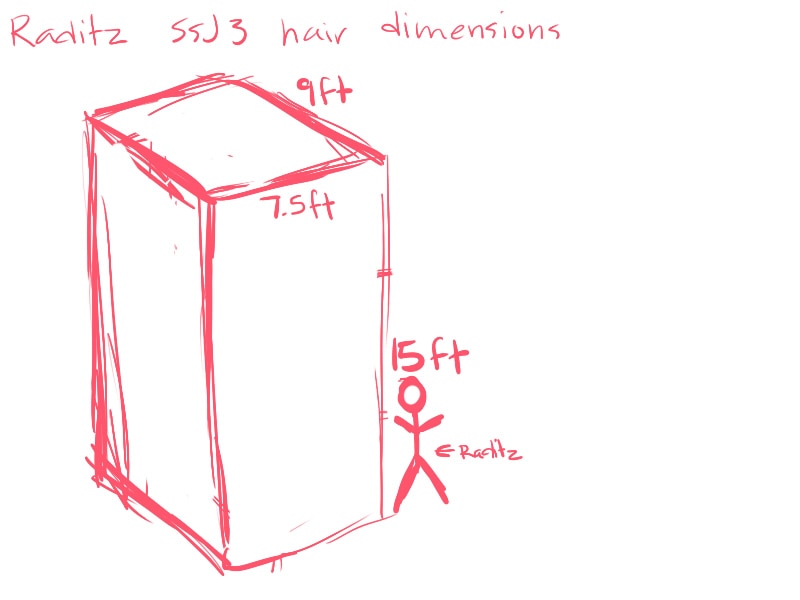 Raditz SSJ3 hair dimensions
9ft
7.5ft
15ft
← Raditz